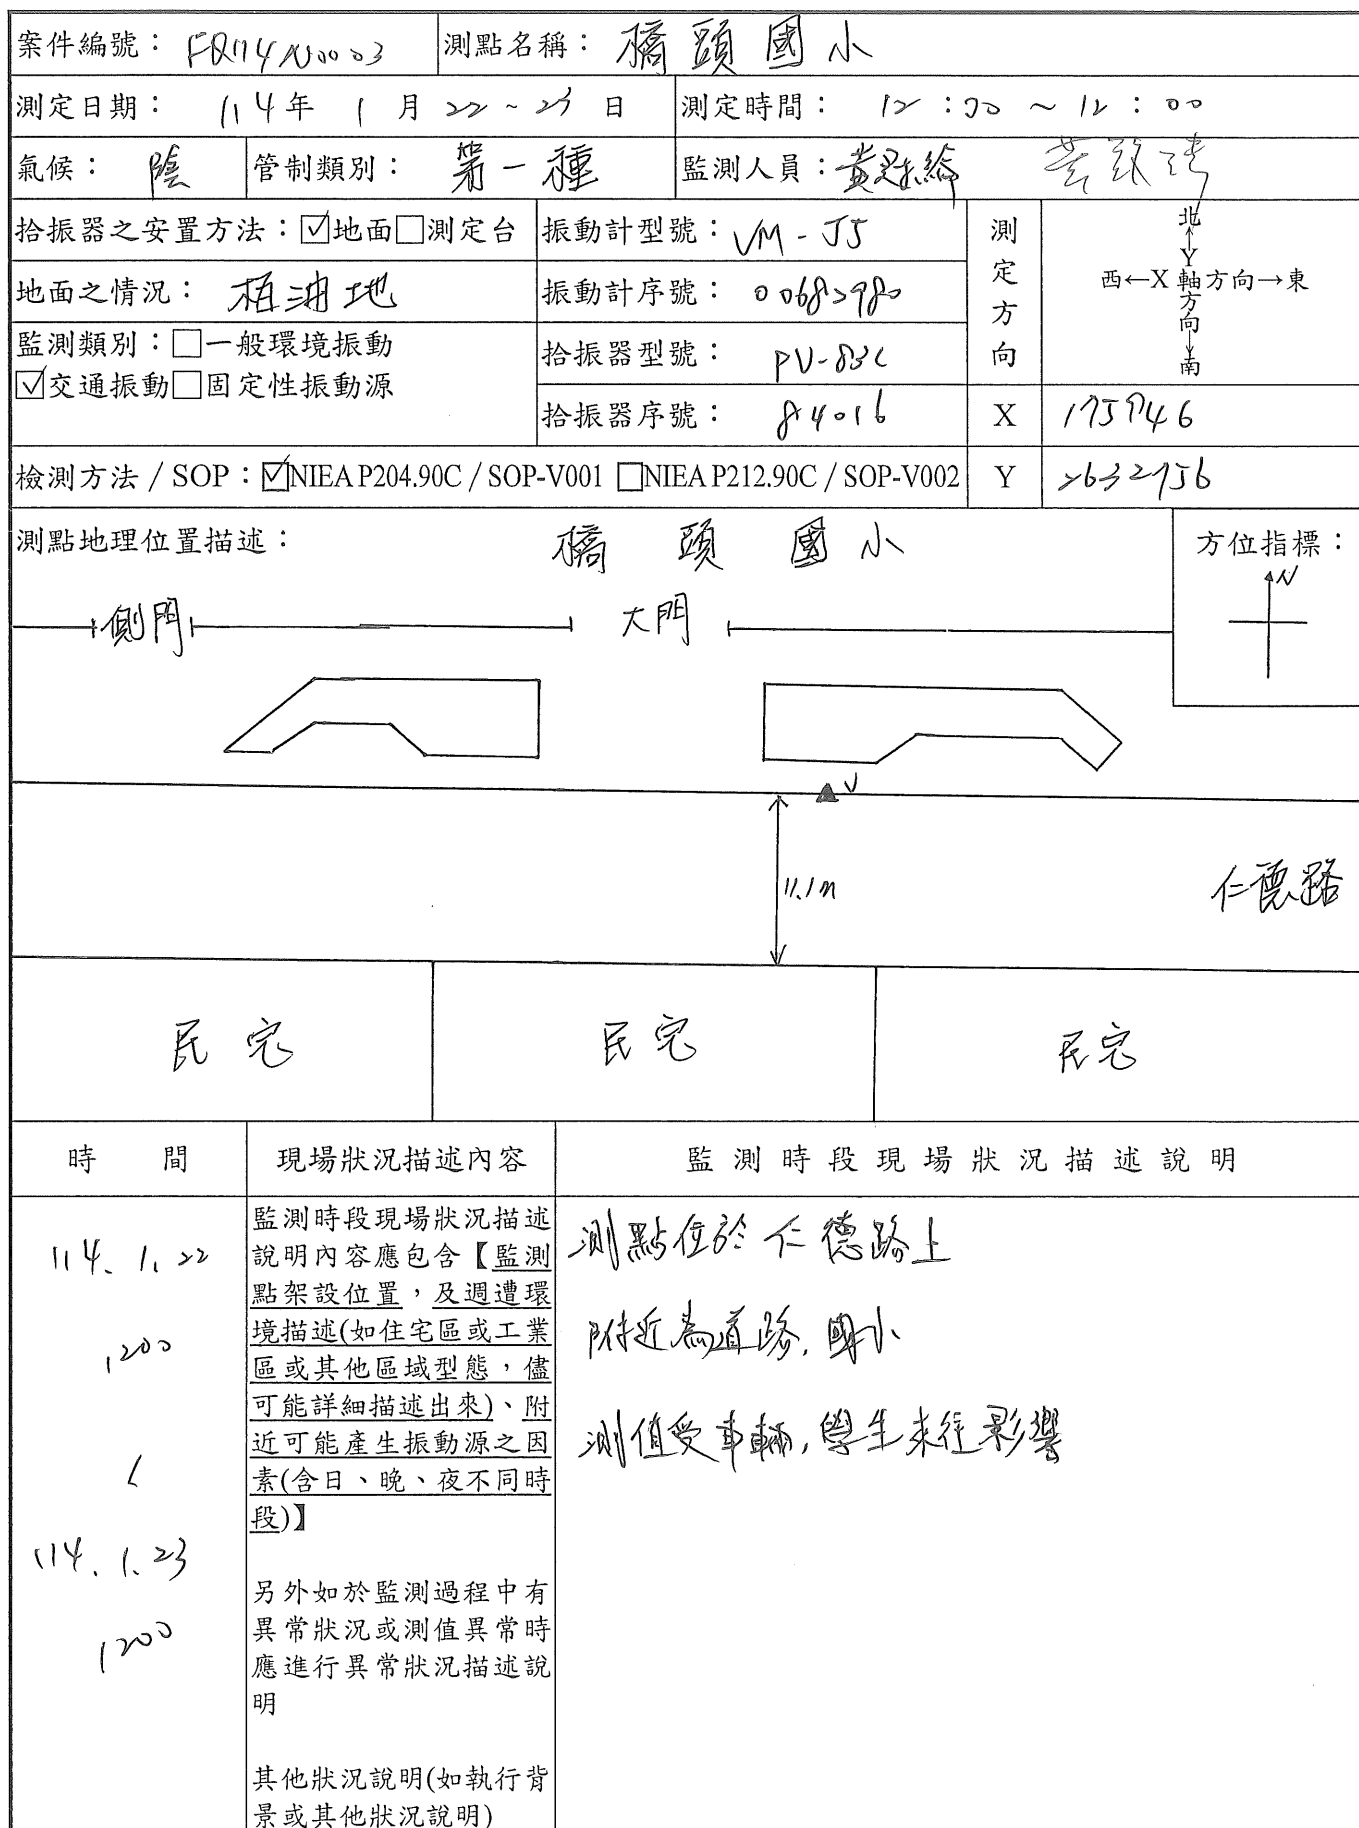 案件編號：FQ114N0003 測點名稱：橋頭國小
測定日期：114年1月22~23日 測定時間：12:00~12:00
氣候：陰 管制類別：第一種 監測人員：
拾振器之安置方法：☑地面□測定台 振動計型號：VM-55 測定方向 北↑Y軸方向↓南 西←X軸方向→東
地面之情況：柏油地 振動計序號：00682980
監測類別：□一般環境振動 拾振器型號：PV-83C
☑交通振動□固定性振動源
拾振器序號：84016 X 175746
檢測方法 / SOP：☑NIEA P204.90C / SOP-V001 □NIEA P212.90C / SOP-V002 Y 2632756
測點地理位置描述： 橋頭國小 方位指標：
N
側門 大門
V
11.1m
仁德路
民宅 民宅 民宅
時間 現場狀況描述內容 監測時段現場狀況描述說明
114.1.22
1200
~
114.1.23
1200
監測時段現場狀況描述
說明內容應包含【監測
點架設位置，及週遭環
境描述(如住宅區或工業
區或其他區域型態，儘
可能詳細描述出來)、附
近可能產生振動源之因
素(含日、晚、夜不同時
段)】
另外如於監測過程中有
異常狀況或測值異常時
應進行異常狀況描述說
明
其他狀況說明(如執行背
景或其他狀況說明)
測點位於仁德路上
附近為道路,國小
測值受車輛,學生來往影響